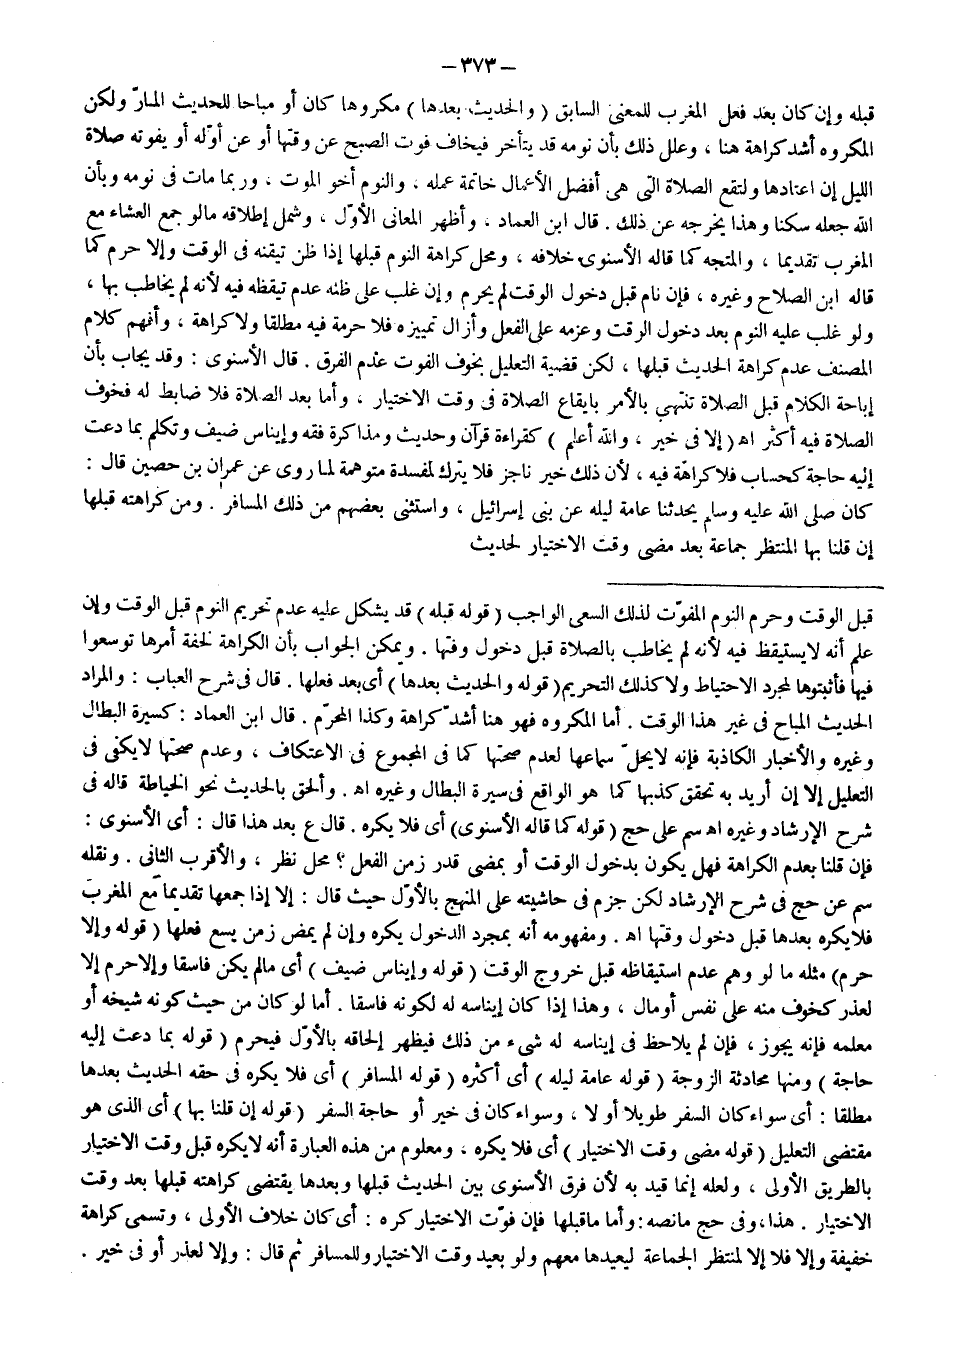 — ٣٧٣ —
قبله وإن كان بعد فعل المغرب للمعنى السابق ( والحديث بعدها ) مكروها كان أو مباحا للحديث المارّ ولكن
المكروه أشد كراهة هنا ، وعلل ذلك بأن نومه قد يتأخر فيخاف فوت الصبح عن وقتها أو عن أوّله أو يفوته صلاة
الليل إن اعتادها ولتقع الصلاة التى هى أفضل الأعمال خاتمة عمله ، والنوم أخو الموت ، وربما مات فى نومه وبأن
الله جعله سكنا وهذا يخرجه عن ذلك . قال ابن العماد ، وأظهر المعانى الأوّل ، وشمل إطلاقه مالو جمع العشاء مع
المغرب تقديما ، والمتجه كما قاله الأسنوى خلافه ، ومحل كراهة النوم قبلها إذا ظن تيقنه فى الوقت وإلا حرم كما
قاله ابن الصلاح وغيره ، فإن نام قبل دخول الوقت لم يحرم وإن غلب على ظنه عدم تيقظه فيه لأنه لم يخاطب بها ،
ولو غلب عليه النوم بعد دخول الوقت وعزمه على الفعل وأزال تمييزه فلا حرمة فيه مطلقا ولا كراهة ، وأفهم كلام
المصنف عدم كراهة الحديث قبلها ، لكن قضية التعليل بخوف الفوت عدم الفرق . قال الأسنوى : وقد يجاب بأن
إباحة الكلام قبل الصلاة تنتهى بالأمر بايقاع الصلاة فى وقت الاختيار ، وأما بعد الصلاة فلا ضابط له فخوف
الصلاة فيه أكثر اه ( إلا فى خير ، والله أعلم ) كقراءة قرآن وحديث ومذاكرة فقه وإيناس ضيف وتكلم بما دعت
إليه حاجة كحساب فلا كراهة فيه ، لأن ذلك خير ناجز فلا يترك لمفسدة متوهمة لما روى عن عمران بن حصين قال :
كان صلى الله عليه وسلم يحدثنا عامة ليله عن بنى إسرائيل ، واستثنى بعضهم من ذلك المسافر . ومن كراهته قبلها
إن قلنا بها المنتظر جماعة بعد مضى وقت الاختيار لحديث
قبل الوقت وحرم النوم المفوّت لذلك السعى الواجب ( قوله قبله ) قد يشكل عليه عدم تحريم النوم قبل الوقت وإن
علم أنه لايستيقظ فيه لأنه لم يخاطب بالصلاة قبل دخول وقتها . ويمكن الجواب بأن الكراهة لخفة أمرها توسعوا
فيها فأثبتوها لمجرد الاحتياط ولا كذلك التحريم ( قوله والحديث بعدها ) أى بعد فعلها . قال فى شرح العباب : والمراد
الحديث المباح فى غير هذا الوقت . أما المكروه فهو هنا أشدّ كراهة وكذا المحرّم . قال ابن العماد : كسيرة البطال
وغيره والأخبار الكاذبة فإنه لايحلّ سماعها لعدم صحتها كما فى المجموع فى الاعتكاف ، وعدم صحتها لايكفى فى
التعليل إلا إن أريد به تحقق كذبها كما هو الواقع فى سيرة البطال وغيره اه . وألحق بالحديث نحو الخياطة قاله فى
شرح الإرشاد وغيره اه سم على حج ( قوله كما قاله الأسنوى) أى فلا يكره . قال ع بعد هذا قال : أى الأسنوى :
فإن قلنا بعدم الكراهة فهل يكون بدخول الوقت أو بمضى قدر زمن الفعل ؟ محل نظر ، والأقرب الثانى . ونقله
سم عن حج فى شرح الإرشاد لكن جزم فى حاشيته على المنهج بالأوّل حيث قال : إلا إذا جمعها تقديما مع المغرب
فلايكره بعدها قبل دخول وقتها اه . ومفهومه أنه بمجرد الدخول يكره وإن لم يمض زمن يسع فعلها ( قوله وإلا
حرم) مثله ما لو وهم عدم استيقاظه قبل خروج الوقت ( قوله وإيناس ضيف ) أى مالم يكن فاسقا وإلاحرم إلا
لعذر كخوف منه على نفس أو مال ، وهذا إذا كان إيناسه له لكونه فاسقا . أما لو كان من حيث كونه شيخه أو
معلمه فإنه يجوز ، فإن لم يلاحظ فى إيناسه له شىء من ذلك فيظهر إلحاقه بالأوّل فيحرم ( قوله بما دعت إليه
حاجة ) ومنها محادثة الزوجة ( قوله عامة ليله ) أى أكثره ( قوله المسافر ) أى فلا يكره فى حقه الحديث بعدها
مطلقا : أى سواء كان السفر طويلا أو لا ، وسواء كان فى خير أو حاجة السفر ( قوله إن قلنا بها ) أى الذى هو
مقتضى التعليل ( قوله مضى وقت الاختيار ) أى فلا يكره ، ومعلوم من هذه العبارة أنه لايكره قبل وقت الاختيار
بالطريق الأولى ، ولعله إنما قيد به لأن فرق الأسنوى بين الحديث قبلها وبعدها يقتضى كراهته قبلها بعد وقت
الاختيار . هذا، وفى حج مانصه : وأما ماقبلها فإن فوّت الاختيار كره : أى كان خلاف الأولى ، وتسمى كراهة
خفيفة وإلا فلا إلا لمنتظر الجماعة ليعيدها معهم ولو بعيد وقت الاختيار وللمسافر ثم قال : وإلا لعذر أو فى خير .